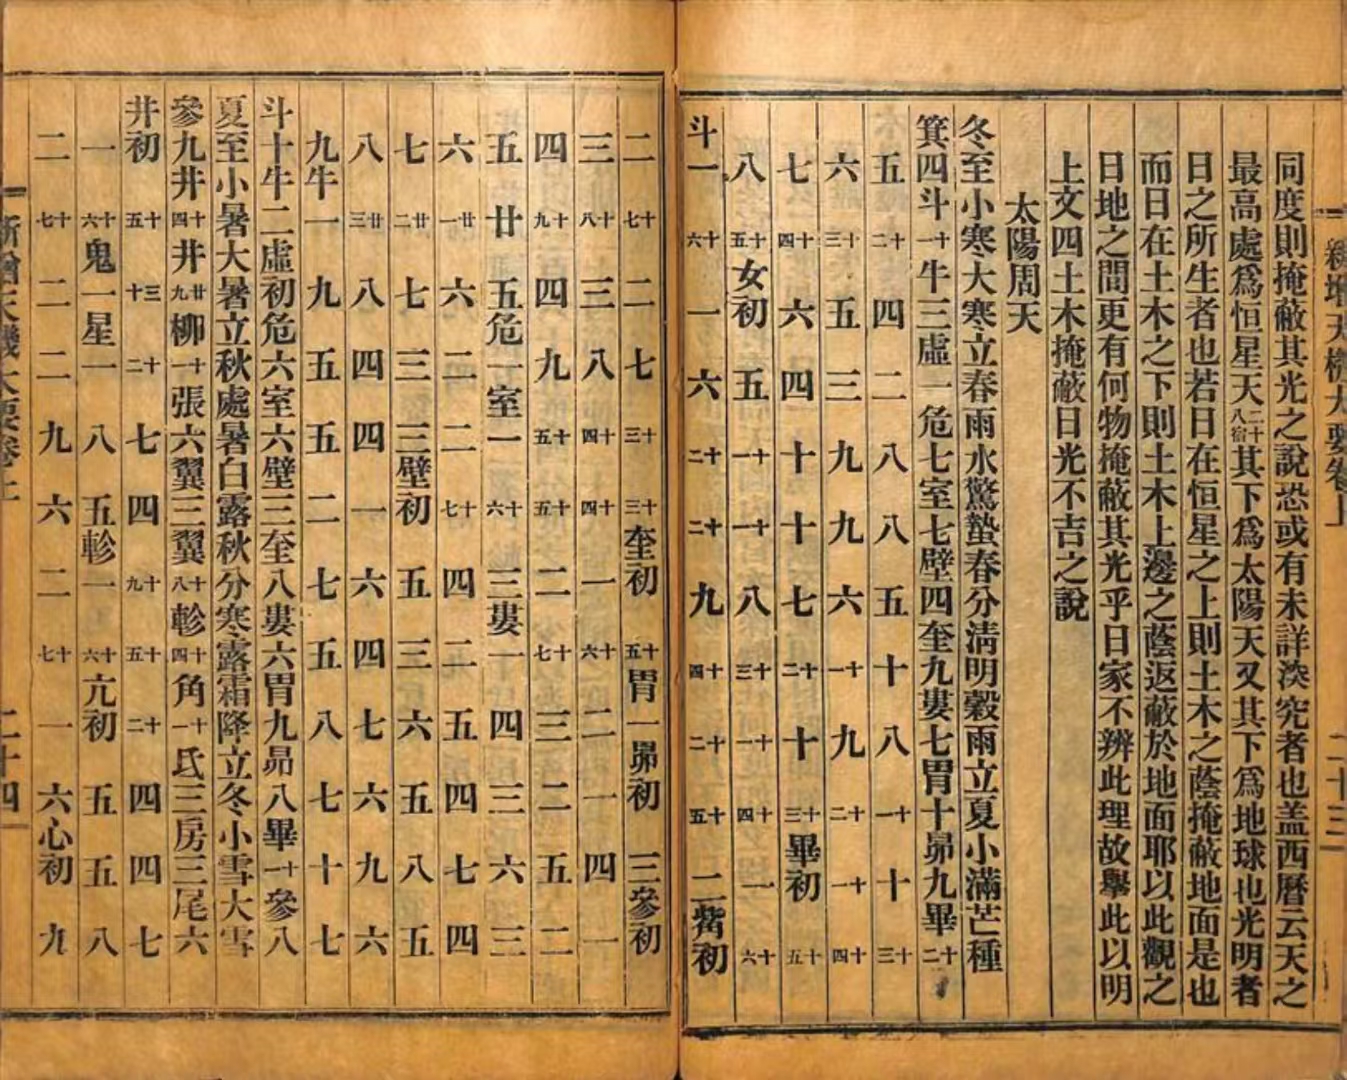 新增天機大要卷上 二十三
同度則掩蔽其光之說恐或有未詳深究者也盖西曆云天之
最高處爲恒星天二十八宿其下爲太陽天又其下爲地球也光明者
日之所生者也若日在恒星之上則土木之蔭掩蔽地面是也
而日在土木之下則土木上邊之蔭返蔽於地面耶以此觀之
日地之間更有何物掩蔽其光乎日家不辨此理故擧此以明
上文四土木掩蔽日光不吉之說
太陽周天
冬至小寒大寒立春雨水驚蟄春分淸明穀雨立夏小滿芒種
箕四斗十一牛三虛一危七室七壁四奎九婁七胃十昴九畢十二
五 十二 四 二 八 八 五 十 八 十一 十 十三
六 十三 五 三 九 九 六 十一 九 十二 十一 十四
七 十四 六 四 十 十 七 十二 十 十三 畢初 十五
八 十五 女初 五 十一 十一 八 十三 十一 十四 一 十六
斗一 十六 一 六 十二 十二 九 十四 十二 十五 二 觜初
二 十七 二 七 十三 十三 奎初 十五 胃一 昴初 三 參初
三 十八 三 八 十四 十四 一 十六 二 一 四 一
四 十九 四 九 十五 十五 二 十七 三 二 五 二
五 廿 五 危一 室一 十六 三 婁一 四 三 六 三
六 廿一 六 二 二 十七 四 二 五 四 七 四
七 廿二 七 三 三 壁初 五 三 六 五 八 五
八 廿三 八 四 四 一 六 四 七 六 九 六
九 牛一 九 五 五 二 七 五 八 七 十 七
斗十牛二虛初危六室六壁三奎八婁六胃九昴八畢十一參八
夏至小暑大暑立秋處暑白露秋分寒露霜降立冬小雪大雪
參九井十四井廿九柳十一張六翼三翼十八軫十四角十一氐三房三尾六
井初 十五 三十 十二 七 四 十九 十五 十二 四 四 七
一 十六 鬼一 星一 八 五 軫一 十六 亢初 五 五 八
二 十七 二 二 九 六 二 十七 一 六 心初 九
新增天機大要卷上 二十四